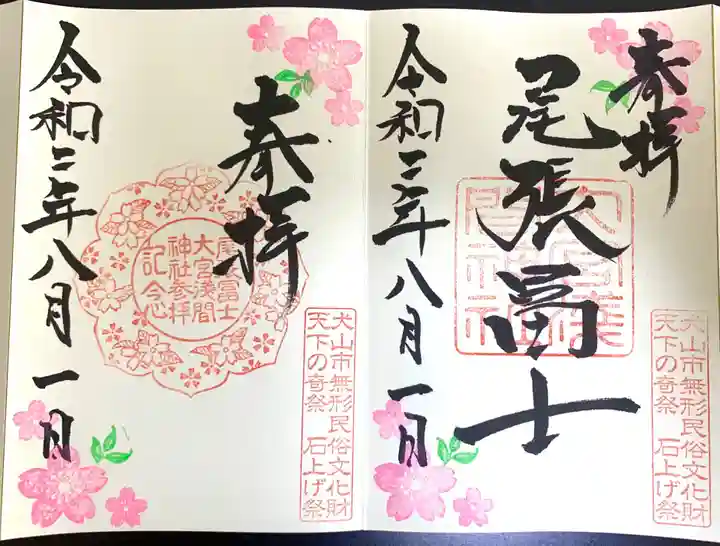 奉拝
尾張冨士
大宮浅間神社
令和三年八月一日
犬山市無形民俗文化財
天下の奇祭 石上げ祭
奉拝
尾張冨士
大宮浅間
神社参拝
記念
令和三年八月一日
犬山市無形民俗文化財
天下の奇祭 石上げ祭